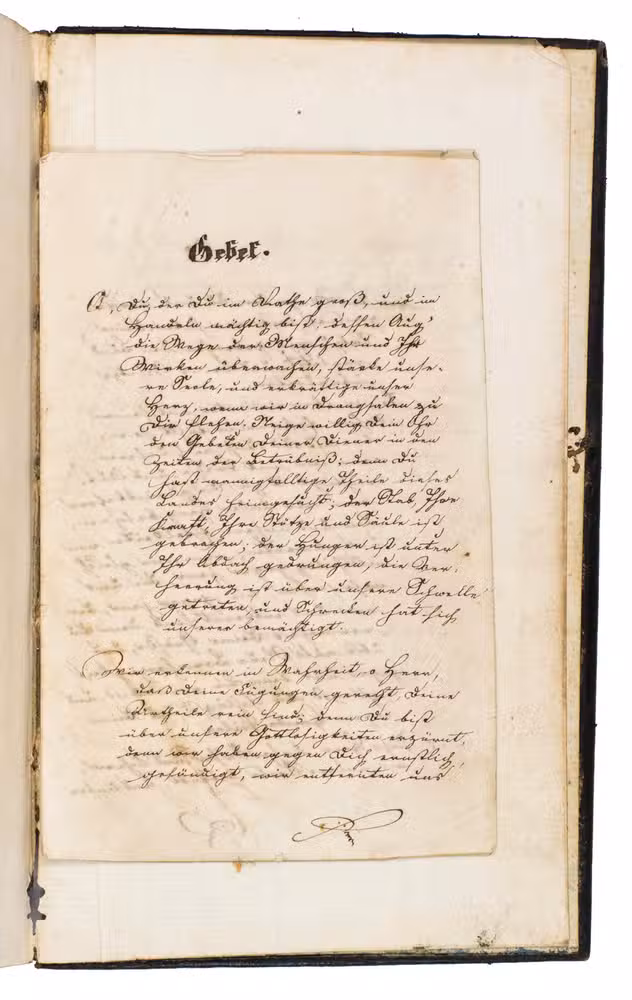 Gebet.
O, Du, der Du im Rathe groß, und im
Handeln mächtig bist; dessen Aug'
die Wege der Menschen und Ihr
Wirken überwachen, stärke unse-
re Seele, und erkräftige unser
Herz, wenn wir in Drangsalen zu
Dir flehen. Neige willig Dein Ohr
den Gebeten Deiner Diener in den
Zeiten der Betrübniß; denn Du
hast mannigfalltige Theile dieses
Landes heimgesucht; der Stab, Ihre
Kraft, Ihre Stütze und Säule ist
gebrochen; der Hunger ist unter
Ihr Obdach gedrungen, die Ver-
heerung ist über unsere Schwelle
getreten, und Schrecken hat sich
unserer bemächtigt.
Wir erkennen in Wahrheit, o Herr,
daß Deine Fügungen gerecht, Deine
Urtheile rein sind; denn Du bist
über unsere Gottlosigkeiten erzürnt,
denn wir haben gegen Dich ernstlich
gesündigt, wir entfernten uns